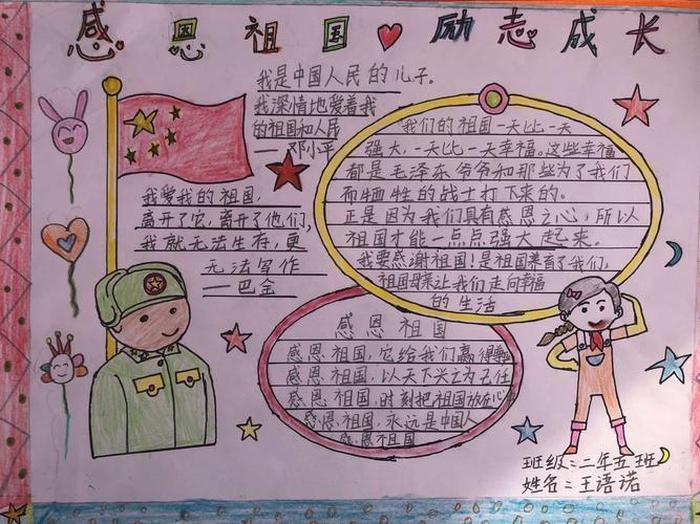 感恩祖国 励志成长
我是中国人民的儿子。
我深情地爱着我
的祖国和人民
——邓小平
我爱我的祖国,
离开了它,离开了他们,
我就无法生存,更
无法写作
——巴金
我们的祖国一天比一天
强大,一天比一天幸福。这些幸福
都是毛泽东爷爷和那些为了我们
而牺牲的战士打下来的。
正是因为我们具有感恩之心,所以
祖国才能一点点强大起来。
我要感谢祖国!是祖国养育了我们,
祖国母亲让我们走向幸福
的生活
感恩祖国
感恩祖国,它给我们赢得
感恩祖国,以天下兴亡为己任
感恩祖国,时刻把祖国放在心中
感恩祖国,永远是中国人
感恩祖国
班级:二年五班
姓名:王语诺